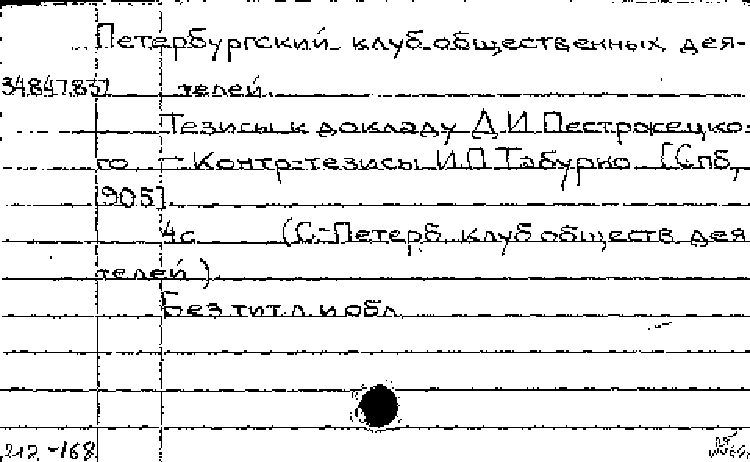 Петербургский клуб общественных дея-
34847851 телей.
Тезисы к докладу Д.И. Пестрожецко-
го. - Контр-тезисы И.П. Табурно. [Спб,
1905].
4с. (С.-Петерб. клуб обществ. дея
телей)
Без тит. л. и обл.
212-168